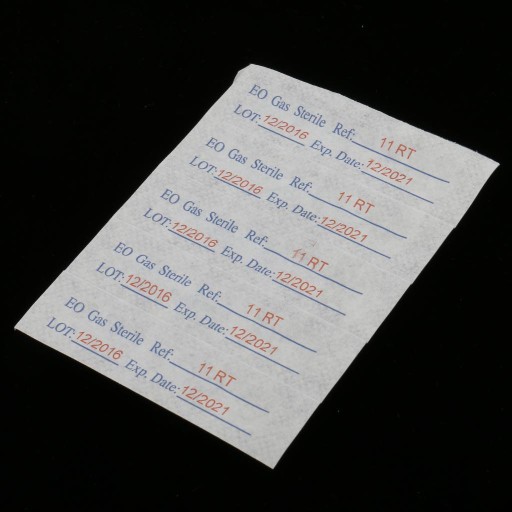 EO Gas Sterile Ref: 11 RT
LOT: 12/2016 Exp. Date: 12/2021
EO Gas Sterile Ref: 11 RT
LOT: 12/2016 Exp. Date: 12/2021
EO Gas Sterile Ref: 11 RT
LOT: 12/2016 Exp. Date: 12/2021
EO Gas Sterile Ref: 11 RT
LOT: 12/2016 Exp. Date: 12/2021
EO Gas Sterile Ref: 11 RT
LOT: 12/2016 Exp. Date: 12/2021